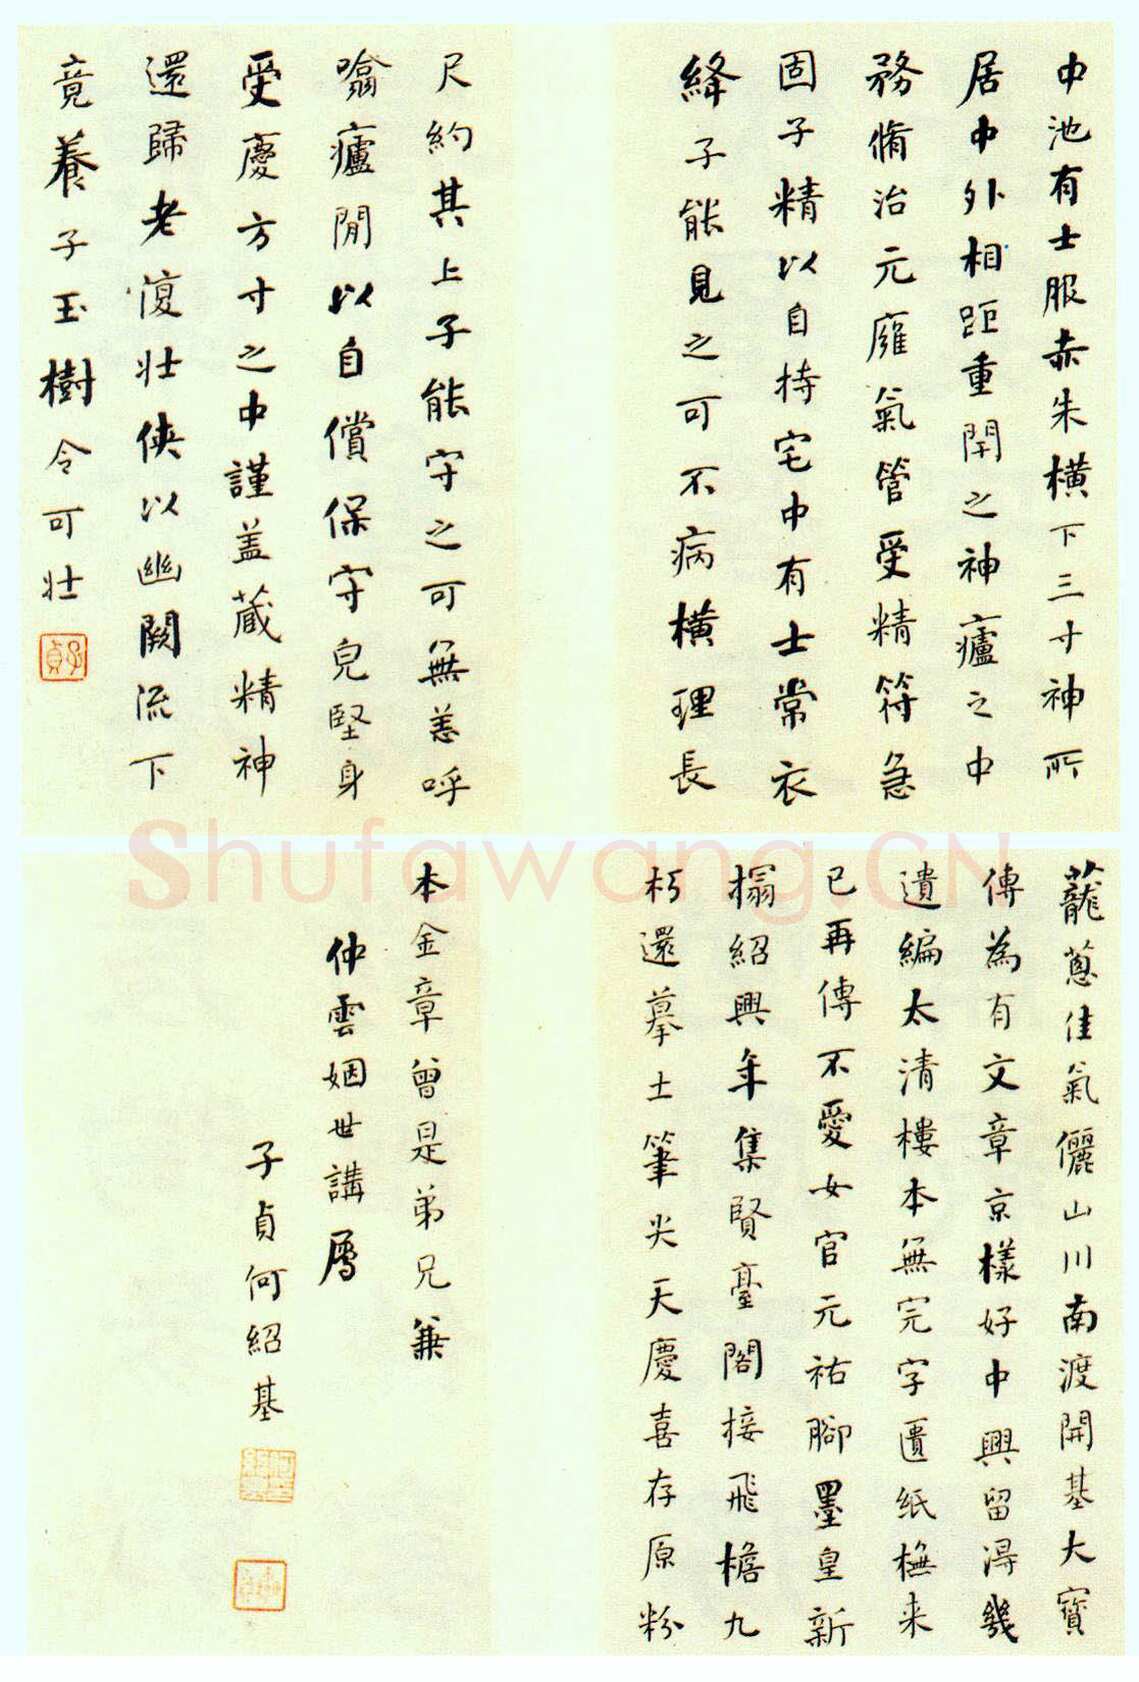 中池有士服赤朱横下三寸神所
居中外相距重閇之神廬之中
務脩治元廱氣管受精符急
固子精以自持宅中有士常衣
絳子能見之可不病横理長
尺約其上子能守之可無恙呼
噏廬閒以自償保守皃堅身
受慶方寸之中謹盖蔵精神
還歸老復壯俠以幽闕流下
竟養子玉樹令可壯
蘢蔥佳氣儷山川南渡開基大寶
傳為有文章京樣好中興留得幾
遺編太清樓本無完字匱紙橅来
已再傳不愛女官元祐腳墨皇新
搨紹興年集賢臺閣接飛檐九
朽還摹士筆尖天慶喜存原粉
本金章曾是弟兄兼
仲雲姻世講屬
子貞何紹基
子貞
Shufawang.CN